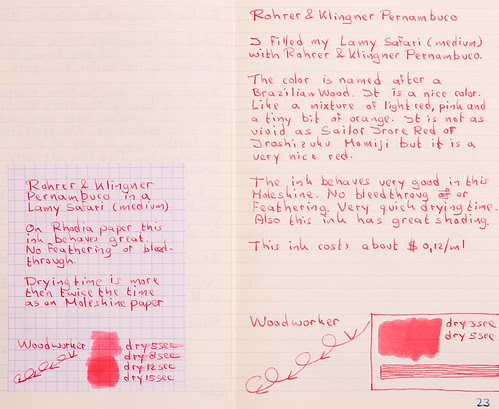 Rohrer & Klingner
Pernambuco in a
Lamy Safari (medium)
On Rhodia paper this
ink behaves great.
No feathering or bleed-
through.
Drying time is more
then twice the time
as on Moleskine paper
Woodworker
dry 5sec
dry 8sec
dry 12sec
dry 15sec
Rohrer & Klingner Pernambuco
I filled my Lamy Safari (medium)
with Rohrer & Klingner Pernambuco.
The color is named after a
Brazilian Wood. It is a nice color.
Like a mixture of light red, pink and
a tiny bit of orange. It is not as
vivid as Sailor Irore Red or
Irashizuku Momiji but it is a
very nice red.
The ink behaves very good in this
Moleskine. No bleedthroug or
Feathering. Very quick drying time.
Also this ink has great shading.
This ink costs about $ 0,12/ml
Woodworker
dry 3sec
dry 5sec
23